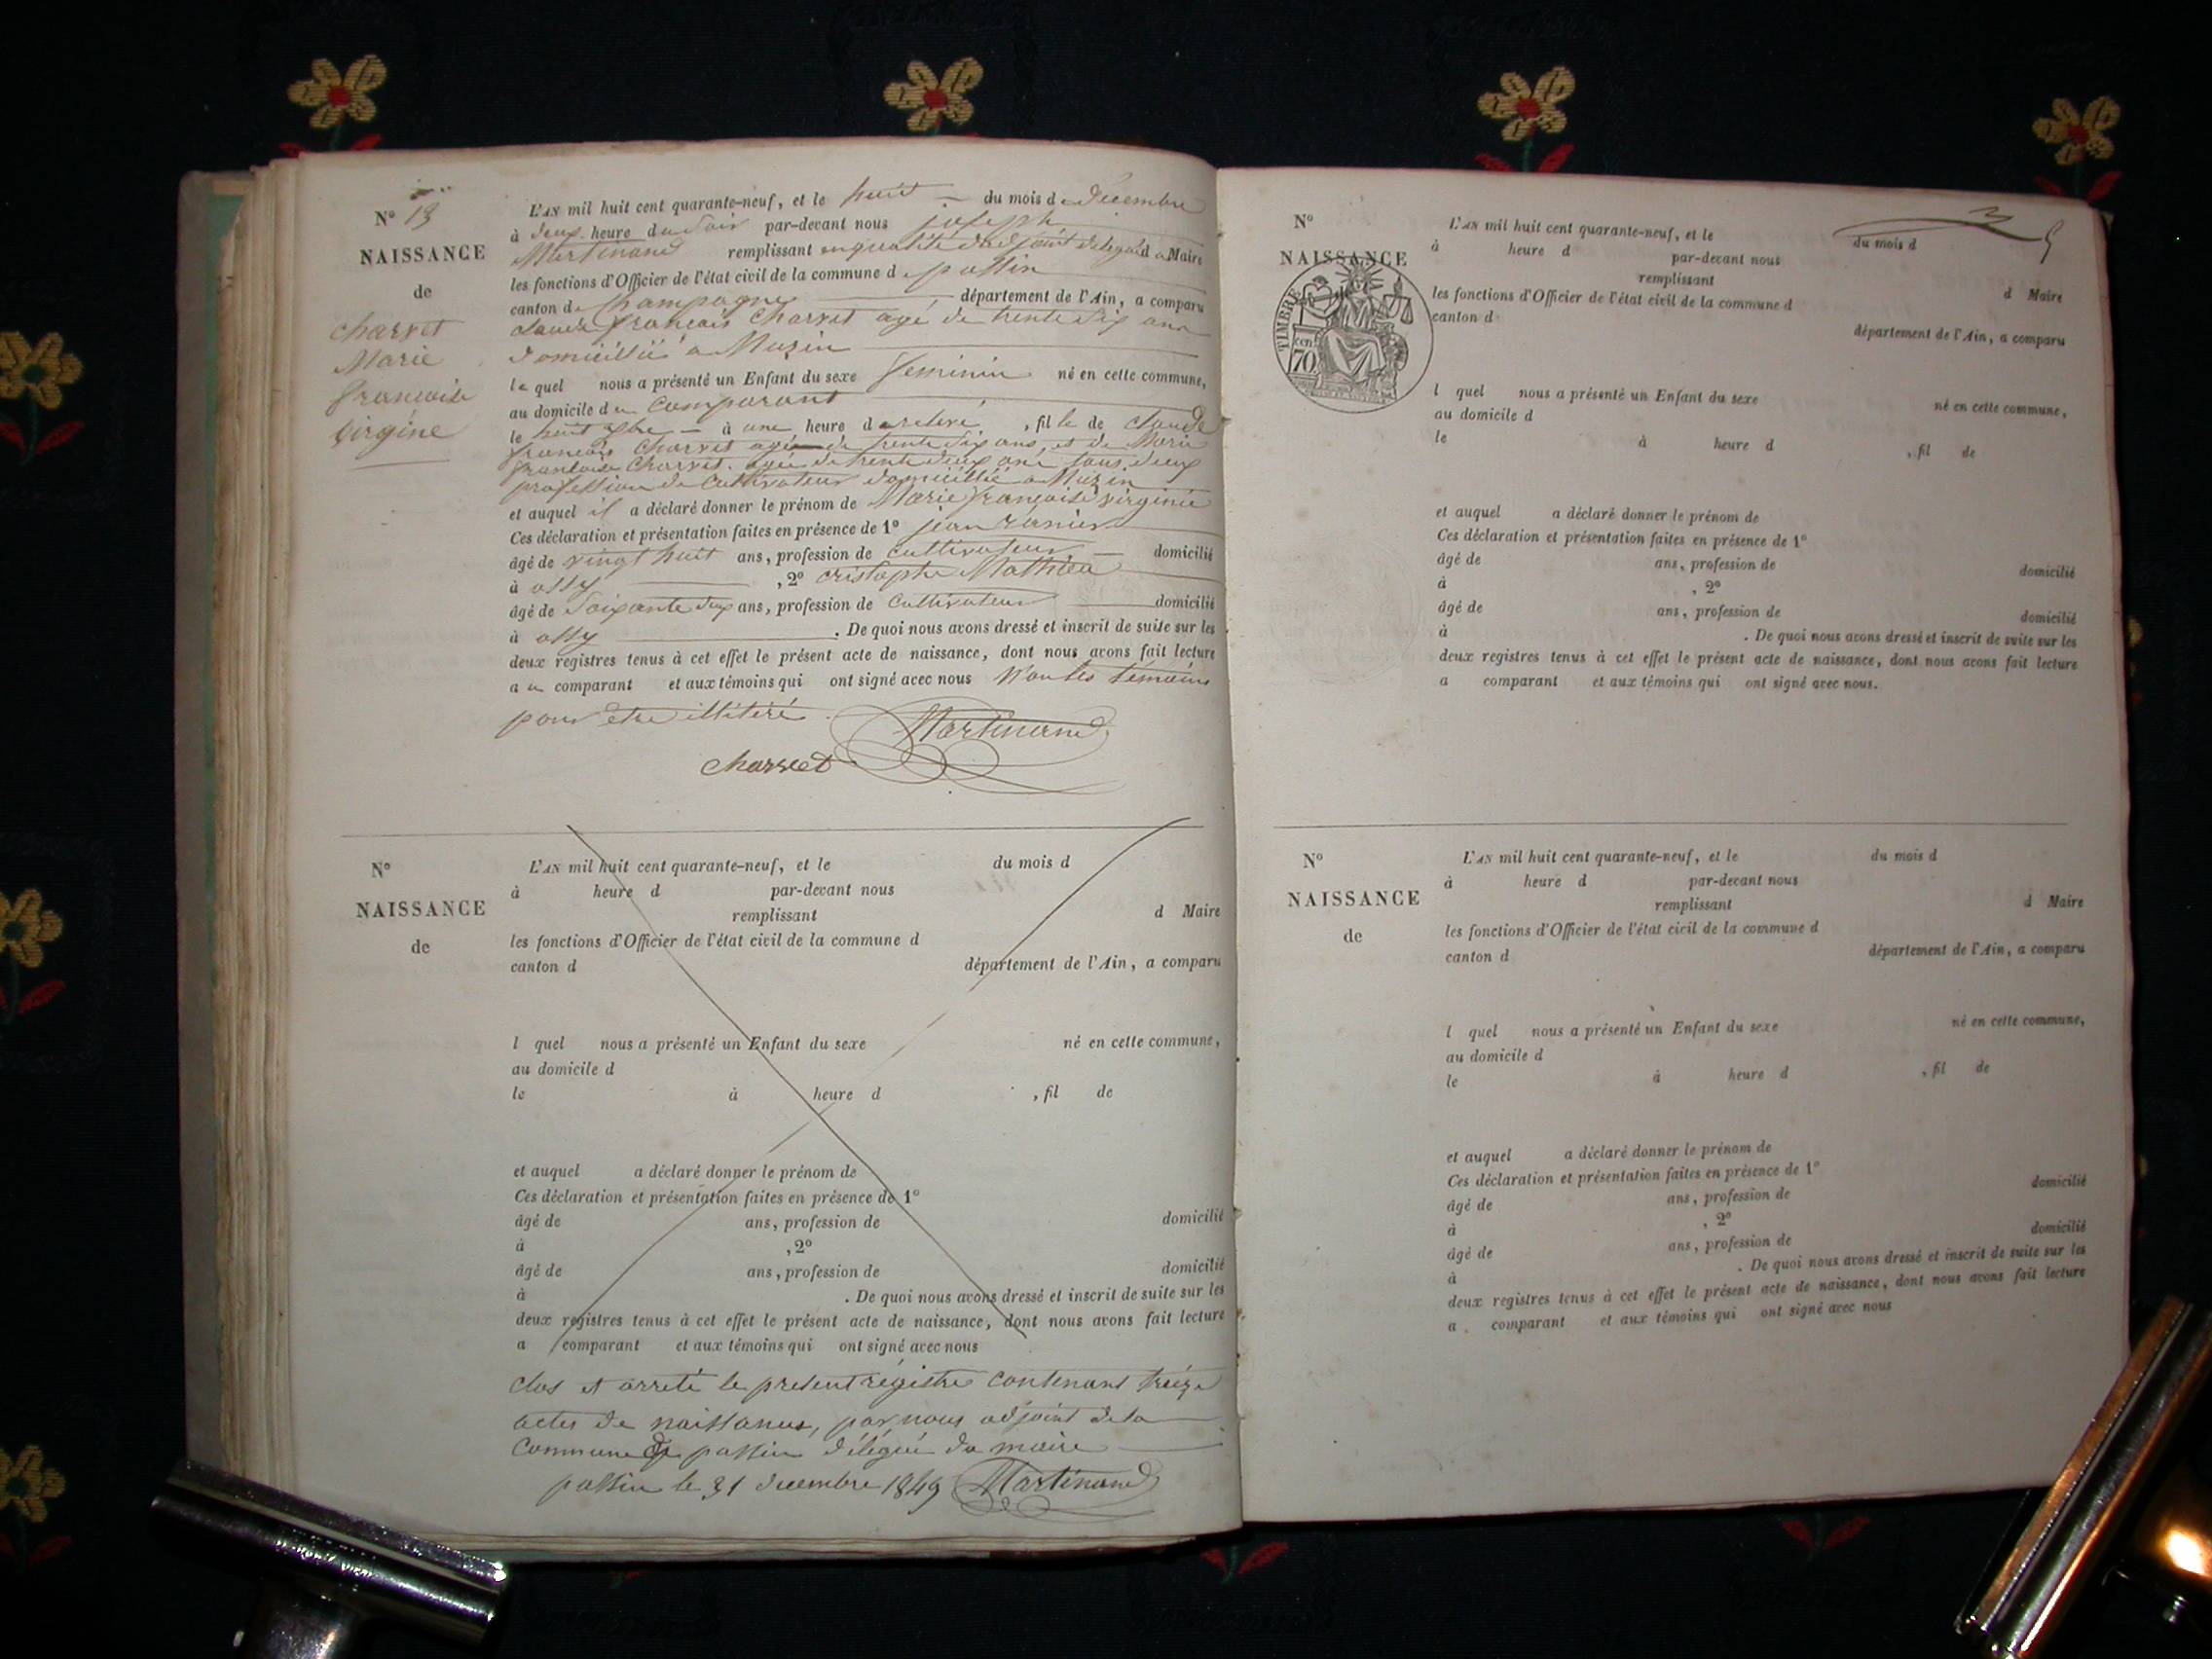 N° 13
NAISSANCE
de
Charvet
Marie
françoise
virgine
L'AN mil huit cent quarante-neuf, et le huit du mois de Décembre
à deux heure du Soir par-devant nous joseph
Martinand remplissant en qualité d'adjoint délégué d Maire
les fonctions d'Officier de l'état civil de la commune de passin
canton de Champagne département de l'Ain, a comparu
claude françois Charvet agé de trente Six ans
domicillié a Muzin
le quel nous a présenté un Enfant du sexe feminin né en cette commune,
au domicile du comparant
le huit Xbre à une heure de relevé, fille de claude
françois Charvet agé de trente Six ans, et de Marie
françoise Charvet. agée de trente deux ans tous deux
profession de Cultivateur domicillié a Muzin
et auquel il a déclaré donner le prénom de Marie françoise virginie
Ces déclaration et présentation faites en présence de 1° jean
âgé de vingt huit ans, profession de Cultivateur domicilié
à ossy , 2° cristophe Mathieu
âgé de Soixante deux ans, profession de Cultivateur domicilié
à ossy . De quoi nous avons dressé et inscrit de suite sur les
deux registres tenus à cet effet le présent acte de naissance, dont nous avons fait lecture
au comparant et aux témoins qui ont signé avec nous Non les témoins
pour etre illitéré.
Martinand
charvet
N°
NAISSANCE
de
L'AN mil huit cent quarante-neuf, et le du mois d
à heure d par-devant nous
remplissant d Maire
les fonctions d'Officier de l'état civil de la commune d
canton d département de l'Ain, a comparu
l quel nous a présenté un Enfant du sexe né en cette commune,
au domicile d
le à heure d , fil de
et auquel a déclaré donner le prénom de
Ces déclaration et présentation faites en présence de 1°
âgé de ans, profession de domicilié
à , 2°
âgé de ans, profession de domicilié
à . De quoi nous avons dressé et inscrit de suite sur les
deux registres tenus à cet effet le présent acte de naissance, dont nous avons fait lecture
a comparant et aux témoins qui ont signé avec nous
clos et arreté le present régistre contenant treize
actes de naissance, par nous adjoint de la
Commune de passin délégué du maire
passin le 31 decembre 1849 Martinand
N°
NAISSANCE
TIMBRE
70 cen
L'AN mil huit cent quarante-neuf, et le du mois d
à heure d par-devant nous
remplissant d Maire
les fonctions d'Officier de l'état civil de la commune d
canton d département de l'Ain, a comparu
l quel nous a présenté un Enfant du sexe né en cette commune,
au domicile d
le à heure d , fil de
et auquel a déclaré donner le prénom de
Ces déclaration et présentation faites en présence de 1°
âgé de ans, profession de domicilié
à , 2°
âgé de ans, profession de domicilié
à . De quoi nous avons dressé et inscrit de suite sur les
deux registres tenus à cet effet le présent acte de naissance, dont nous avons fait lecture
a comparant et aux témoins qui ont signé avec nous.
N°
NAISSANCE
de
L'AN mil huit cent quarante-neuf, et le du mois d
à heure d par-devant nous
remplissant d Maire
les fonctions d'Officier de l'état civil de la commune d
canton d département de l'Ain, a comparu
l quel nous a présenté un Enfant du sexe né en cette commune,
au domicile d
le à heure d , fil de
et auquel a déclaré donner le prénom de
Ces déclaration et présentation faites en présence de 1°
âgé de ans, profession de domicilié
à , 2°
âgé de ans, profession de domicilié
à . De quoi nous avons dressé et inscrit de suite sur les
deux registres tenus à cet effet le présent acte de naissance, dont nous avons fait lecture
a comparant et aux témoins qui ont signé avec nous